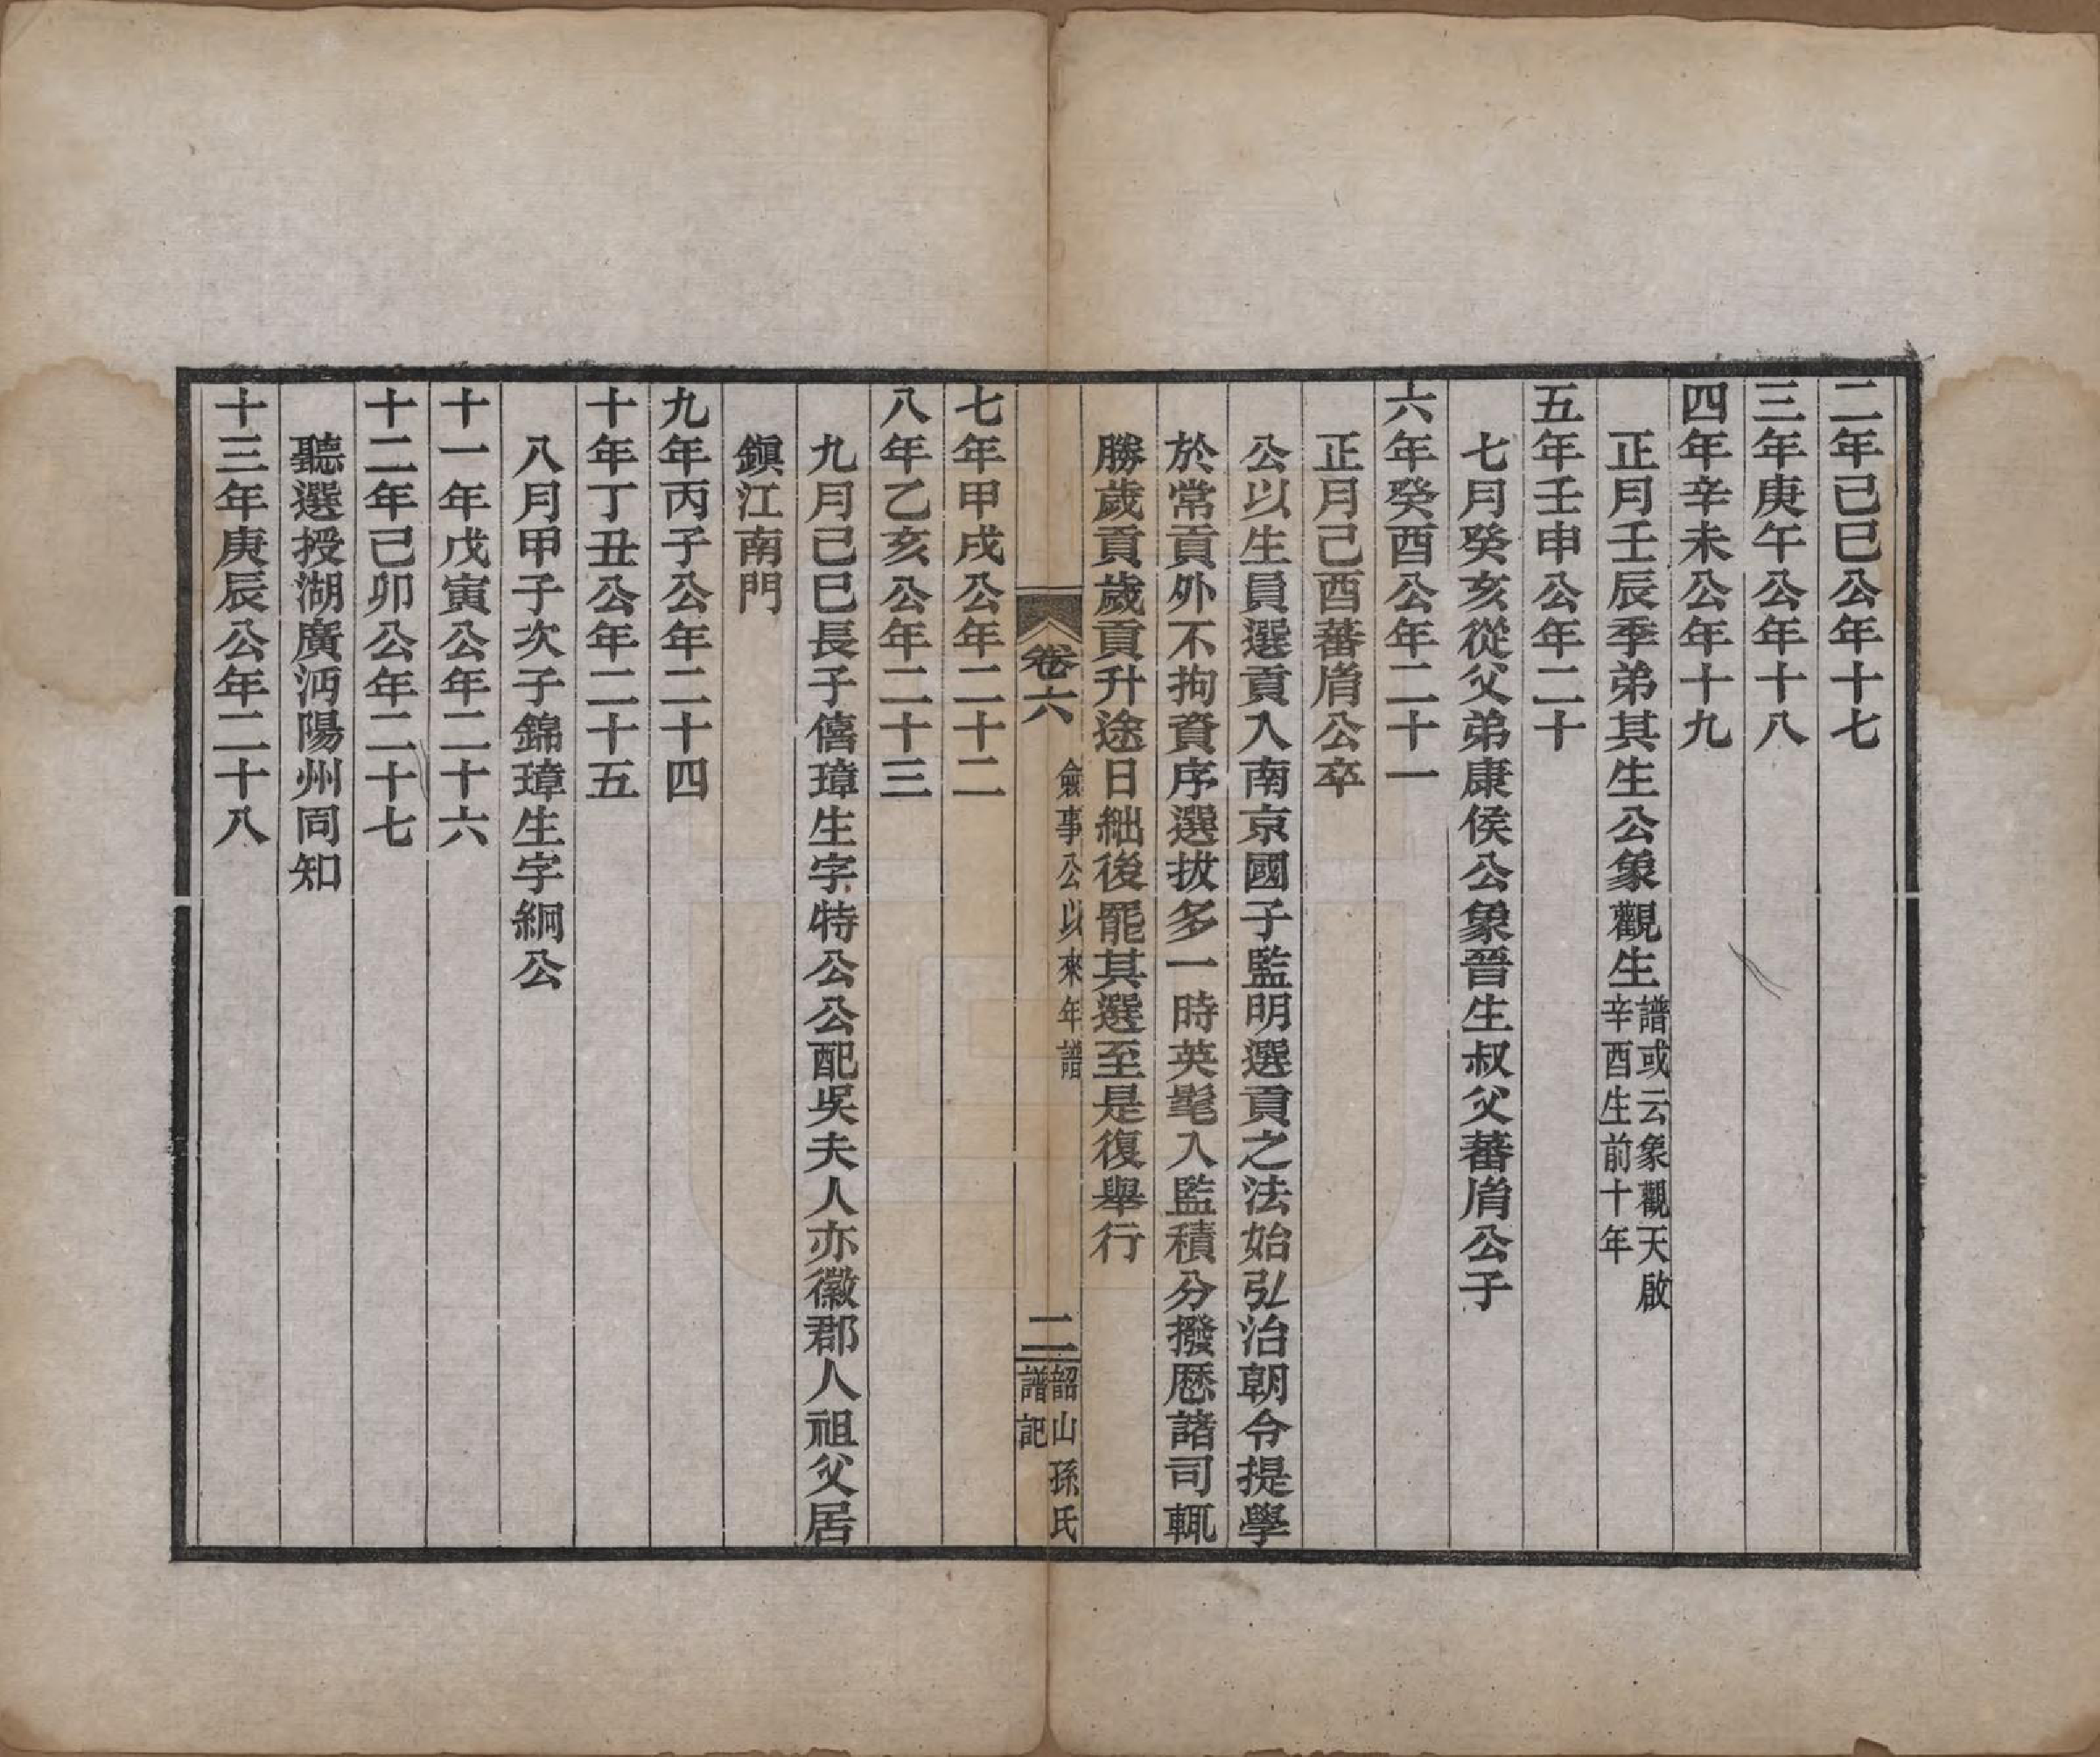 二年己巳公年十七
三年庚午公年十八
四年辛未公年十九
正月壬辰季弟其生公象觀生譜或云象觀天啟辛酉生前十年
五年壬申公年二十
七月癸亥從父弟康侯公象晉生叔父蕃㡿公子
六年癸酉公年二十一
正月己酉蕃㡿公卒
公以生員選貢入南京國子監明選貢之法始弘治朝令提學
於常貢外不拘資序選拔多一時英髦入監積分撥歷諸司輒
勝歲貢歲貢升途日絀後罷其選至是復舉行
卷六
僉事公以來年譜
二
韶山孫氏譜記
七年甲戌公年二十二
八年乙亥公年二十三
九月己巳長子僖璋生字特公公配吳夫人亦徽郡人祖父居
鎭江南門
九年丙子公年二十四
十年丁丑公年二十五
八月甲子次子錦璋生字絅公
十一年戊寅公年二十六
十二年己卯公年二十七
聽選授湖廣沔陽州同知
十三年庚辰公年二十八